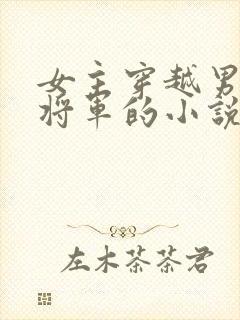 女主穿越男
將軍的小說
左木茶茶君